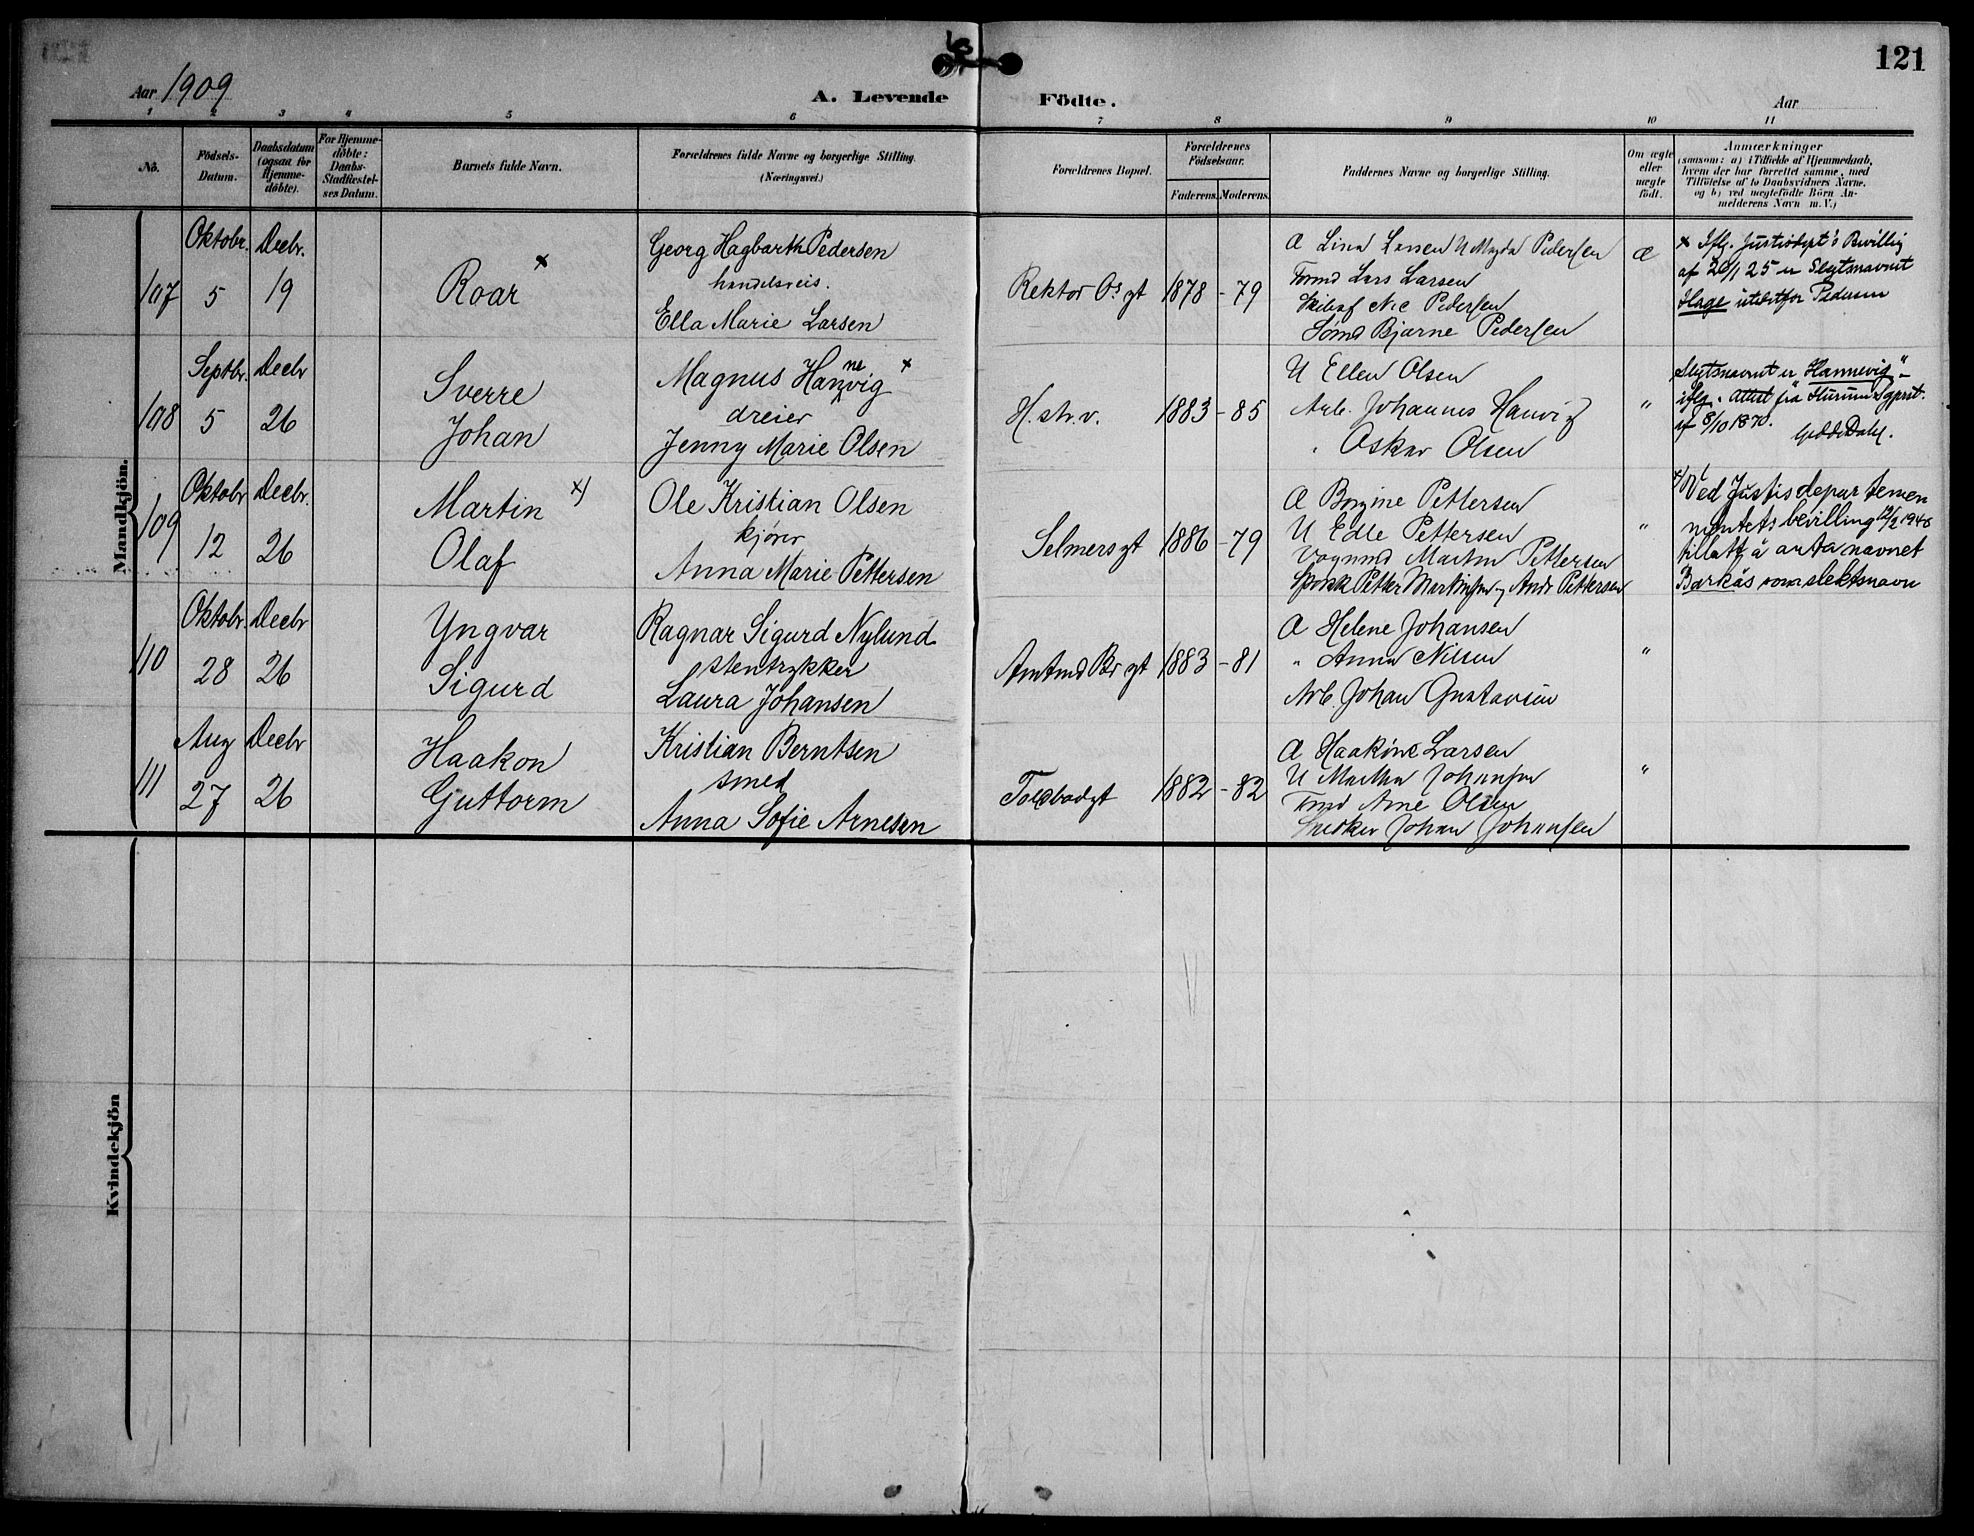 121
Aar 1909
A. Levende Födte.
Aar
1 2 3 4 5 6 7 8 9 10 11
No.
Födsels-Datum.
Daabsdatum (ogsaa for Hjemme-döbte).
For Hjemme-döbte: Daabs-Stadfæstel-ses Datum.
Barnets fulde Navn.
Forældrenes fulde Navne og borgerlige Stilling.
(Næringsvei.)
Forældrenes Bopæl.
Forældrenes Födselsaar.
Faderens. Moderens.
Faddernes Navne og borgerlige Stilling.
Om ægte eller uægte födt.
Anmærkninger
(saasom: a) i Tilfælde af Hjemmedaab,
hvem der har forrettet samme, med
Tilföielse af to Daabsvidners Navne,
og b) ved uægtefödte Börn An-
melderens Navn m. V.)
Mandkjön.
107
Oktobr. 5
Decbr. 19
Roar x
Georg Hagbarth Pedersen
handelsreis.
Ella Marie Larsen
Rektor Os gt
1878 - 79
A Lina Larsen U Magda Pedersen
Tømd Lars Larsen
Nic Pedersen
Sømd Bjarne Pedersen
æ
x Iflg. Justisdept's Bevillig
af 20/1 25 er Slegtsnavnet
Hage utelatt for Pedersen
108
Septbr. 5
Decbr 26
Sverre
Johan
Magnus Hannevig x
dreier
Jenny Marie Olsen
H. str. v.
1883 - 85
U Ellen Olsen
Arb. Johannes Hanvig
" Oskar Olsen
"
Slegtsnavnet er "Hannevig" -
iflg. attest fra Hurum Sgprst.
af 8/10 1870.
109
Oktobr 12
Decbr. 26
Martin x)
Olaf
Ole Kristian Olsen
kjører
Anna Marie Pettersen
Selmersgt
1886 - 79
A Borgine Pettersen
U Edle Pettersen
Vognmd Martin Pettersen
Petter Martinsen, Andr Pettersen
"
x) Ved Justisdepartemen
mentets bevilling 12/2 1946
tillatt å anta navnet
Barkås som slektsnavn
110
Oktobr. 28
Decbr 26
Yngvar
Sigurd
Ragnar Sigurd Nylund
stentrykker
Laura Johansen
Amtmd Bl gt
1883 - 81
A Helene Johansen
" Anna Nilsen
Arb. Johan Gustavsen
"
111
Aug 27
Decbr 26
Haakon
Guttorm
Kristian Berntsen
smed
Anna Sofie Arnesen
Toldbodgt
1882 - 82
A Haakine Larsen
U Martha Johansen
Tømd Arne Olsen
Snedker Johan Johansen
"
Kvindekjön